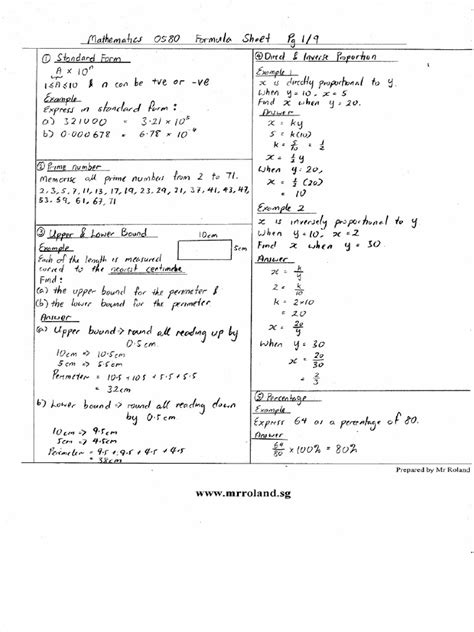 Mathematics 0580 Formula Sheet Pg 1/9
① Standard Form
A × 10ⁿ
1≤A≤10 & n can be +ve or -ve
Example
Express in standard form:
a) 321000 = 3.21 × 10⁵
b) 0.000678 = 6.78 × 10⁻⁴
② Prime number
Memorise all prime numbers from 2 to 71.
2,3,5,7,11,13,17,19,23,29,31,37,41,43,47
53,59,61,67,71
③ Upper & Lower Bound
10cm
Example
5cm
Each of the length is measured
correct to the nearest centimetre
Find:
(a) the upper bound for the perimeter &
(b) the lower bound for the perimeter
Answer
(a) Upper bound → round all reading up by
0.5cm.
10cm ⇒ 10.5cm
5cm ⇒ 5.5cm
Perimeter = 10.5 + 10.5 + 5.5 + 5.5
= 32cm
b) Lower bound → round all reading down
by 0.5cm.
10cm ⇒ 9.5cm
5cm ⇒ 4.5cm
Perimeter = 9.5 + 9.5 + 4.5 + 4.5
= 28cm
④ Direct & Inverse Proportion
Example 1
x is directly proportional to y.
When y = 10, x = 5
Find x when y = 20.
Answer
x = ky
5 = k(10)
k = 5/10 = 1/2
x = 1/2 y
When y = 20,
x = 1/2 (20)
= 10
Example 2
x is inversely proportional to y
When y = 10, x = 2
Find x when y = 30.
Answer
x = k/y
2 = k/10
k = 2×10
= 20
x = 20/y
When y = 30
x = 20/30
= 2/3
⑤ Percentage
Example
Express 64 as a percentage of 80.
Answer
64/80 × 100% = 80%
Prepared by Mr Roland
www.mrroland.sg